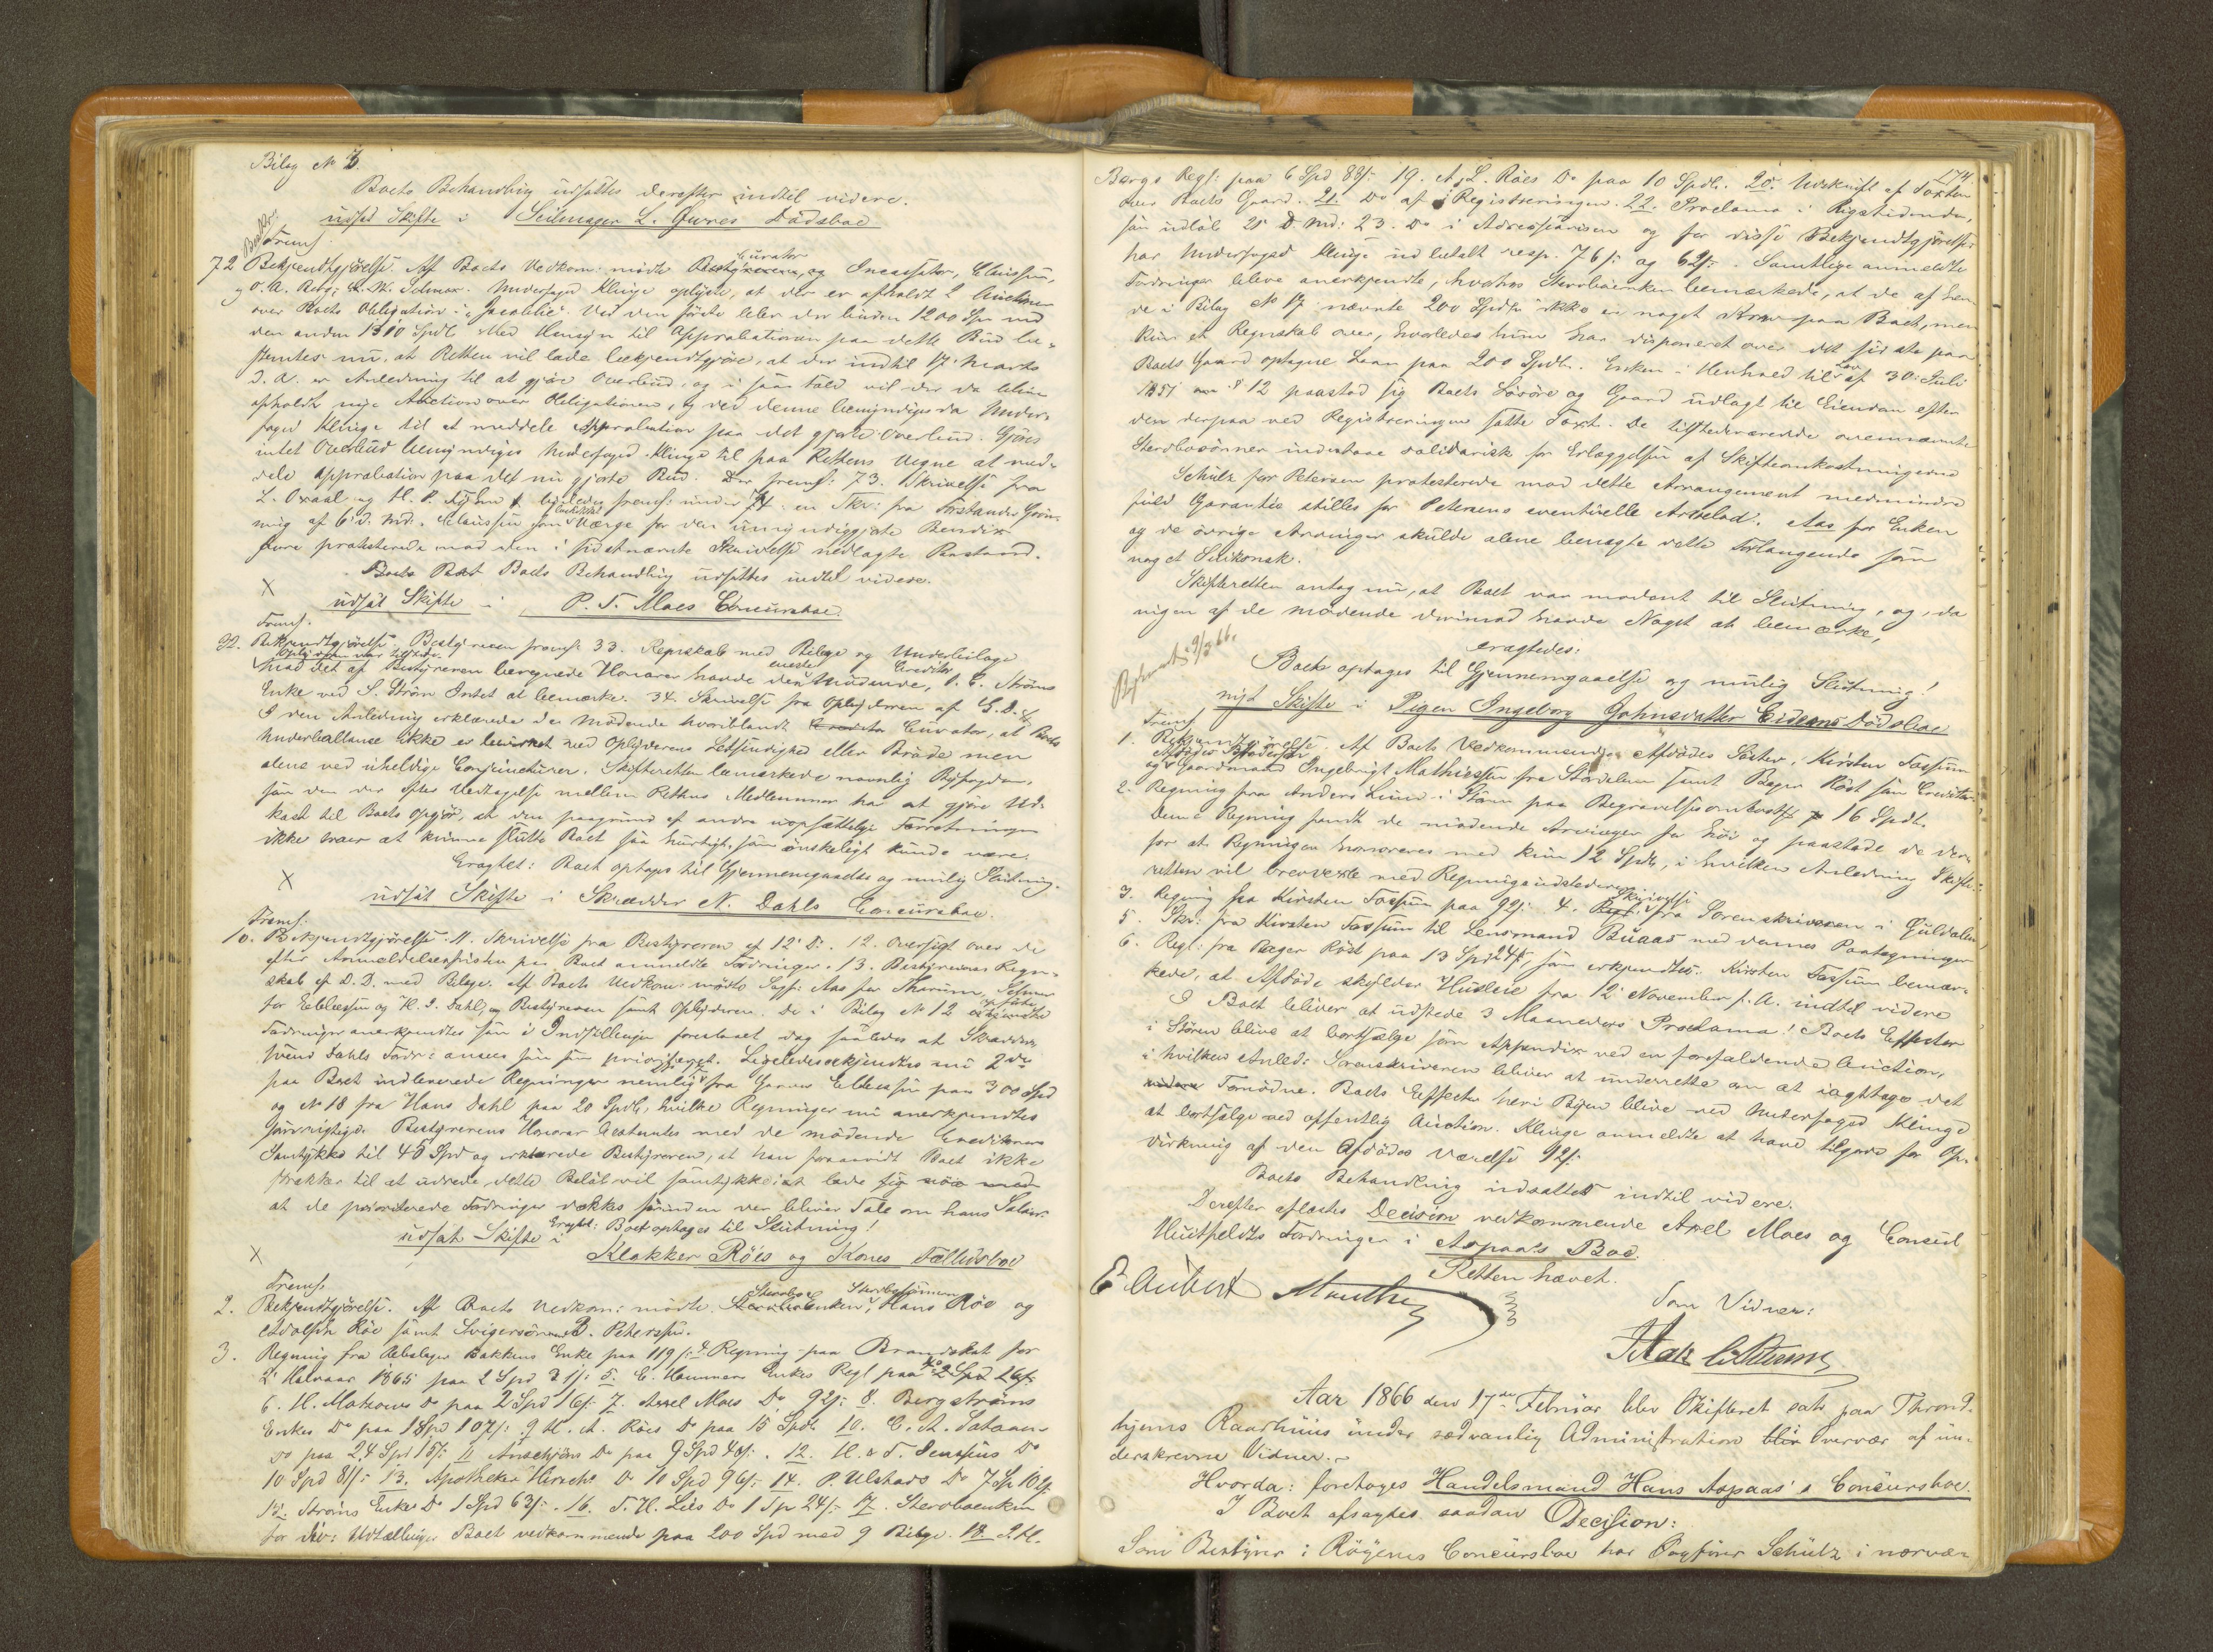 Bilag No 7.
Boets Behandling udsattes derefter indtil videre.
udsat Skifte i Seilmager L. Gures Dødsboe
Fremf.
72 Bekjendtgjørelse. Af Boets Vedkom: mødte Curator og Incassator, Claussen,
oplyste, at der er afholdt 2 Auctioner
over Boets Obligation i Ved den første blev der buden 1200 Spd ved
den anden 1310 Spdl. Med Hensyn til Approbationen paa dette Bud be-
stemtes nu, at Retten vil lade bekjendtgjøre, at der indtil 17. Marts
d. A. er Anledning til at gjøre Overbud, og i saa Fald vil der da blive
afholdt nye Auction over Obligationen, og ved denne bemyndiges da Under-
foged Klinge til at meddele Approbation paa det gjorte Overbud. Gjøres
intet Overbud bemyndiges Underfoged Klinge til paa Rettens Vegne at med-
dele Approbation paa det nu gjorte Bud. Der fremf: 73. Skrivelse fra
L. Oxaal og ligeledes fremf: under 74 en Skr: fra Forstander
af 6 d. Md. Claussen som Værge for den umyndiggjorte Bendix
Gure protesterede mod den i sidstnævnte Skrivelse nedlagte Paastand.
Boets Behandling udsattes indtil videre.
X
udsat Skifte i P. T. Moes Concursboe.
Fremf.
32. Bekjendtgjørelse. Bestyreren fremf: 33. Regnskab med Bilage og Underbilage
Mod det af Bestyreren beregnede Honorar havde den eneste mødende Creditor, Strøms
Enke ved S. Strøm Intet at bemærke. 34. Skrivelse fra Oplyderen af G.D.
I den Anledning erklærede de Mødende hvoriblandt Curator, at Boets
Underballance ikke er bevirket ved Opbyderens Letsindighed eller Brøde men
alene ved uheldige Conjuncturer. Skifteretten bemærkede navnlig Byfogden,
som den der efter Vedtagelse mellem Rettens Medlemmer har at gjøre Ud-
kast til Boets Opgjør, at den paagrund af andre uopsættelige Forretninger
ikke troer at kunne slutte Boet saa hurtigt, som ønskeligt kunde være.
Eragtet: Boet optages til Gjennemgaaelse og mulig Slutning.
X
udsat Skifte i Skrædder N. Dahls Concursboe.
Fremf.
10. Bekjendtgjørelse. 11. Skrivelse fra Bestyreren af 12' D. 12. Oversigt over de
efter Anmeldelsesfristen paa Boet anmeldte Fordringer. 13. Bestyrerens Regn-
skab af D. D. med Bilage. Af Boets Vedkom: mødte Sagf: Aas for Selmer
for Ebbesen og H. J. Dahl, og Bestyreren samt Opbyderen. De i Bilag No 12 opførte
Fordringer anerkjendtes som i Indstillingen foreslaaet dog saaledes at Skrædder
Svend Dahls Fordr: ansees som prioriteret. Ligeledes erkjendtes nu 2de
paa Boet indleverede Regninger nemlig fra Garver Ebbesen paa 300 Spd
og No 18 fra Hans Dahl paa 20 Spdl, hvilke Regninger nu anerkjendtes
som rigtige. Bestyrerens Honorar bestemtes med de mødende Creditorers
Samtykke til 45 Spd og erklærede Bestyreren, at han forsaavidt Boet ikke
strækker til at udrede dette Beløb vil samtykke i at lade sig nøie med
at de prioriterede Fordringer dækkes førinden der bliver Tale om hans Salair.
Eragtet: Boet optages til Slutning!
udsat Skifte i
X
Klokker Röes og Kones Fællesboe
Fremf.
2. Bekjendtgjørelse. Af Boets Vedkom: mødte Enken, Stervbosønnerne Hans Röe og
Adolph Röe samt Svigersønnen Petersen.
3. Regning fra Rebslager Bakkens Enke paa 119 s: 4 Regning paa Brandskat for
2' Halvaar 1865 paa 2 Spd 31 s: 5. E. Hammers Enkes Regl paa 2 Spd 26 s:
6. H. Matzows Do paa 2 Spd 16 s: 7. Axel Moes Do 92 s: 8. Bergstrøms
Enkes Do paa 1 Spd 107 s: 9 H. A. Röes Do paa 15 Spdl. 10. C. A.
Do paa 24 Spd 15 s: 11 Do paa 9 Spd 48 s: 12. H. & T. Do
10 Spd 81 s: 13. Apotheker Hirsch's Do 10 Spd 96 s: 14. P. Ulstads Do 7 Sp 10 s:
15. Strøms Enkes Do 1 Spd 63 s: 16. T. H. Lies Do 1 Spr 24 s: 17. Stervboenken
for div: Udtællinger Boet vedkommende paa 200 Spd med 9 Bilage. 18.
174
Bergs Regl: paa 6 Spd 88 s: 19. A. L. Röes Do paa 10 Spdl. 20. Udskrift af Taxten
over Boets Gaard. 21. Do af Registreringen. 22. Proclama i Rigstidende,
som udløb 25 D. Md: 23. Do i Adresseavisen og for disse Bekjendtgjørelser
har Underfoged Klinge udbetalt resp. 76 s: og 62 s: Samtlige anmeldte
Fordringer bleve anerkjendte, hvorhos Stervboenken bemærkede, at de af hen-
de i Bilag No 17 nævnte 200 Spdlr ikke er noget Krav paa Boet, men
kun et Regnskab over, hvorledes hun har disponeret over det sidste paa
Boets Gaard optagne Laan paa 200 Spdlr. Enken i Henhold til Lov af 30. Juli
1851 § 12 paastod sig Boets Løsøre og Gaard udlagt til Eiendom efter
den derpaa ved Registreringen satte Taxt. De tilstedeværende ovennævnte
Stervbosønner indestaae solidarisk for Erlæggelsen af Skifteomkostningerne
Schulz for Petersen protesterede mod dette Arrangement medmindre
fuld Garantie stilles for Petersens eventuelle Arvelod. Aas for Enken
og de øvrige Arvinger skulde alene benægte dette Forlangende som
noget Chikanøst.
Skifteretten antog nu, at Boet var modent til Slutning, og, da
ingen af de mødende derimod havde Noget at bemærke,
eragtedes:
Boet optages til Gjennemgaaelse og mulig Slutning!
9/3 66.
nyt Skifte i Pigen Ingeborg Johnsdatter Eidems Dødsboe
Fremf.
1. Bekjendtgjørelse. Af Boets Vedkommende Afdødes Søster, Kirsten Fossum
og Gaardmand Ingebrigt Mathiesen fra Størdalen samt Bager Röst som Creditor
2. Regning fra Anders Lund i Støren paa Begravelsesomkostg 16 Spdl.
Denne Regning fandt de mødende Arvinger for høi og paastode de der-
for at Regningen honoreres med kun 12 Spdl, i hvilken Anledning Skifte-
retten vil brevvexle med Regningsudstederen
3. Regning fra Kirsten Fossum paa 92 s: 4. Skrivelse fra Sorenskriveren i Guldalen
5. Skr: fra Kirsten Fossum til Lensmand Buaas med dennes Paategninger
6. Regl: fra Bager Röst paa 13 Spd 24 s:, som erkjendtes. Kirsten Fossum bemær-
kede, at Afdøde skylder Husleie fra 12' November f. A. indtil videre
I Boet bliver at udstede 3 Maaneders Proclama! Boets Effecter
i Støren blive at bortsælge som Appendix ved en forefaldende Auction,
i hvilken Anled: Sorenskriveren bliver at underrette om at iagttage det
Fornødne. Boets Effecter her i Byen blive ved Underfoged Klinge
at bortsælge ved offentlig Auction. Klinge anmeldte at have tilgode for Op-
virkning af den Afdødes Værelse 92 s:
Boets Behandling udsattes indtil videre.
Derefter aflæstes Decision vedkommende Axel Moes og Consul
Huitfeldts Fordringer i Aspaas Boe.
Retten hævet.
E Aubert Mauthe
Som Vidner:
Aar 1866 den 17de Februar blev Skifteret sat paa Thrond-
hjems Raadhuus under sædvanlig Administration Overvær af un-
derskrevne Vidner.
Hvorda: foretoges Handelsmand Hans Aspaas's Concursboe.
I Boet afsagdes saadan Decision:
Som Bestyrer i Röyens Concursboe har Sagfører Schulz i nærvæ-